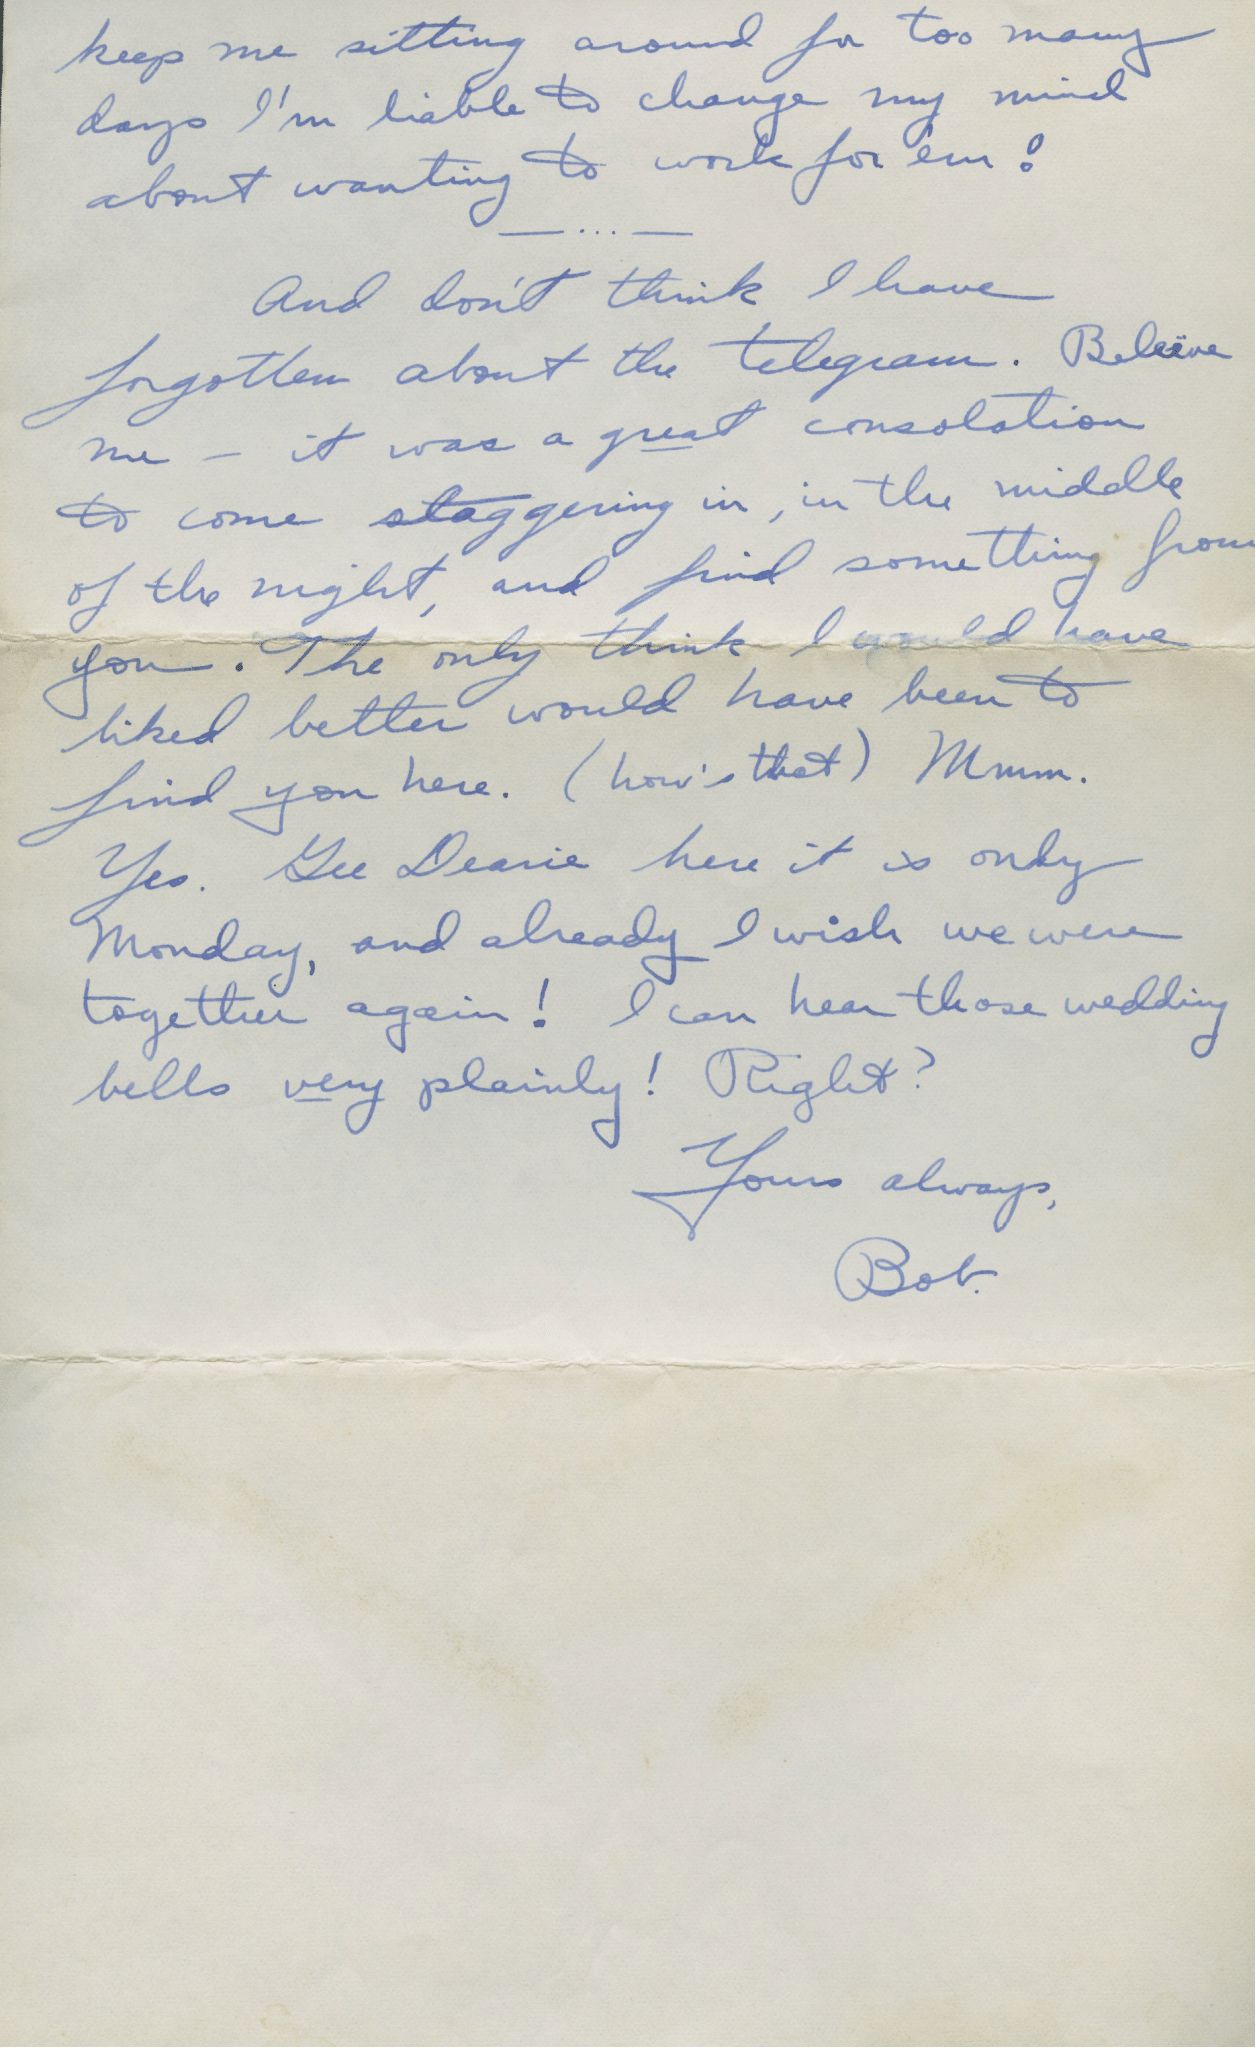 keep me sitting around for too many
days I'm liable to change my mind
about wanting to work for 'em!
— ... —
And don't think I have
forgotten about the telegram. Believe
me – it was a great consolation
to come staggering in, in the middle
of the night, and find something from
you. The only think I would have
liked better would have been to
find you here. (how's that) Mmmm.
Yes. Gee Dearie here it is only
Monday, and already I wish we were
together again! I can hear those wedding
bells very plainly! Right?
Yours always,
Bob.